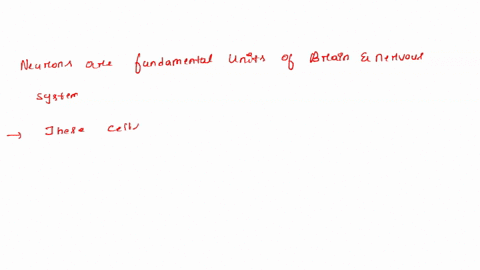 Neurons are fundamental units of Brain & nervous
system
→ These cells